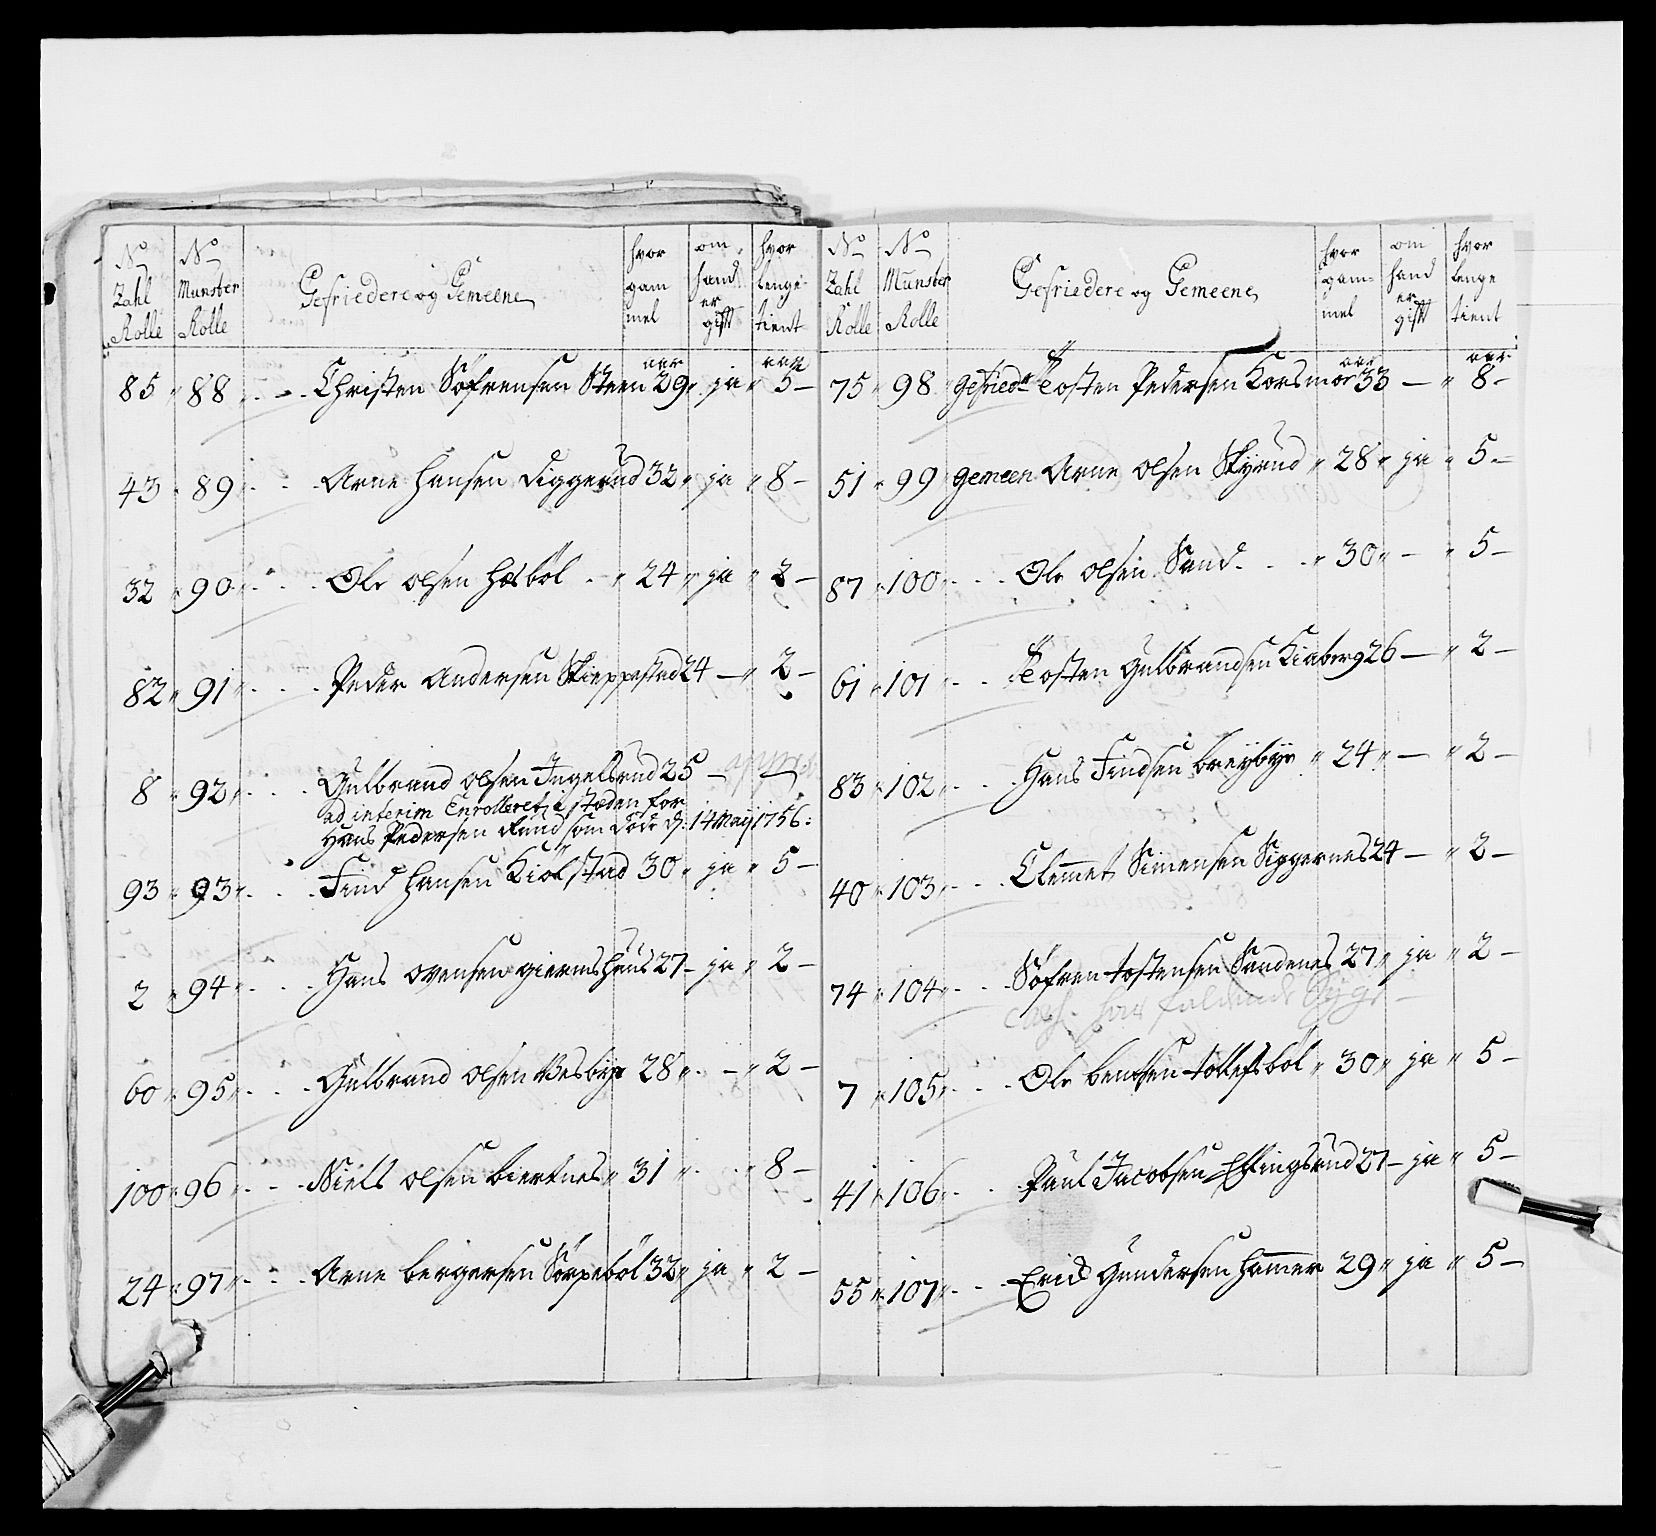 No Zahl Rolle | No Munster Rolle | Gefriedere og Gemeene | hvor gam mel | om hand er gift | hvor lenge tient
85 " 88 " - - Christen Söfrensen Steen 29 aar " ja " 5 aar -
43 " 89 " - - Arne Hansen Diggerud 32 " ja " 8 -
32 " 90 " - - Ole Olsen Hosböl - " 24 " ja " 2 -
82 " 91 " - - Peder Andersen Skieppestad 24 - " 2 -
8 " 92 " - - Gulbrand Olsen Ingelsrud 25 -
ad interim Enrolleret i stæden for
Hans Pedersen Rund som döde d: 14 Maij 1756:
93 " 93 " - - Find Hansen Kiölstad 30 " ja " 5 -
2 " 94 " - - Hans Ovensen giermshuus 27 - ja " 2 -
60 " 95 " - - Gulbrand Olsen Besbye 28 " - " 2 -
100 " 96 " - - Niels Olsen Biertnes " 31 " - " 8 -
24 " 97 " - - Arne Bergersen Sörpeböl 32 " ja " 2 -
No Zahl Rolle | No Munster Rolle | Gefriedere og Gemeene | hvor gam= mel | om hand er gift | hvor lenge tient
75 " 98 Gefried Tosten Pedersen Korsmoe 33 aar - " 8 aar -
51 " 99 Gemeen Arne Olsen Skyrud " 28 " ja " 5 -
87 " 100 " - - Ole Olsen Sand - - " 30 " - " 5 -
61 " 101 " - - Tosten Gulbrandsen Kiaberg 26 - " 2 -
83 " 102 " - - Hans Findsen Breybye " 24 " - " 2 -
40 " 103 " - - Clemmet Simensen Siggernes 24 - " 2 -
74 " 104 " - - Söfren Tostensen Sandenes 27 " ja " 2 -
har faldende Syge -
7 " 105 " - - Ole Bentsen Tollefsböl " 30 " ja " 5 -
41 " 106 " - - Paul Jacobsen Eftingsrud 27 - ja " 5 -
55 " 107 " - - Erick Gundersen Hammer 29 " ja " 5 -